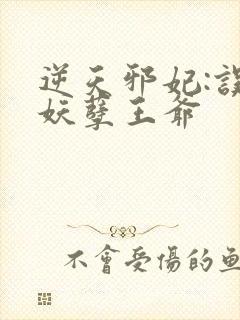 逆天邪妃:誤
妖孽王爺
不會受傷的魚